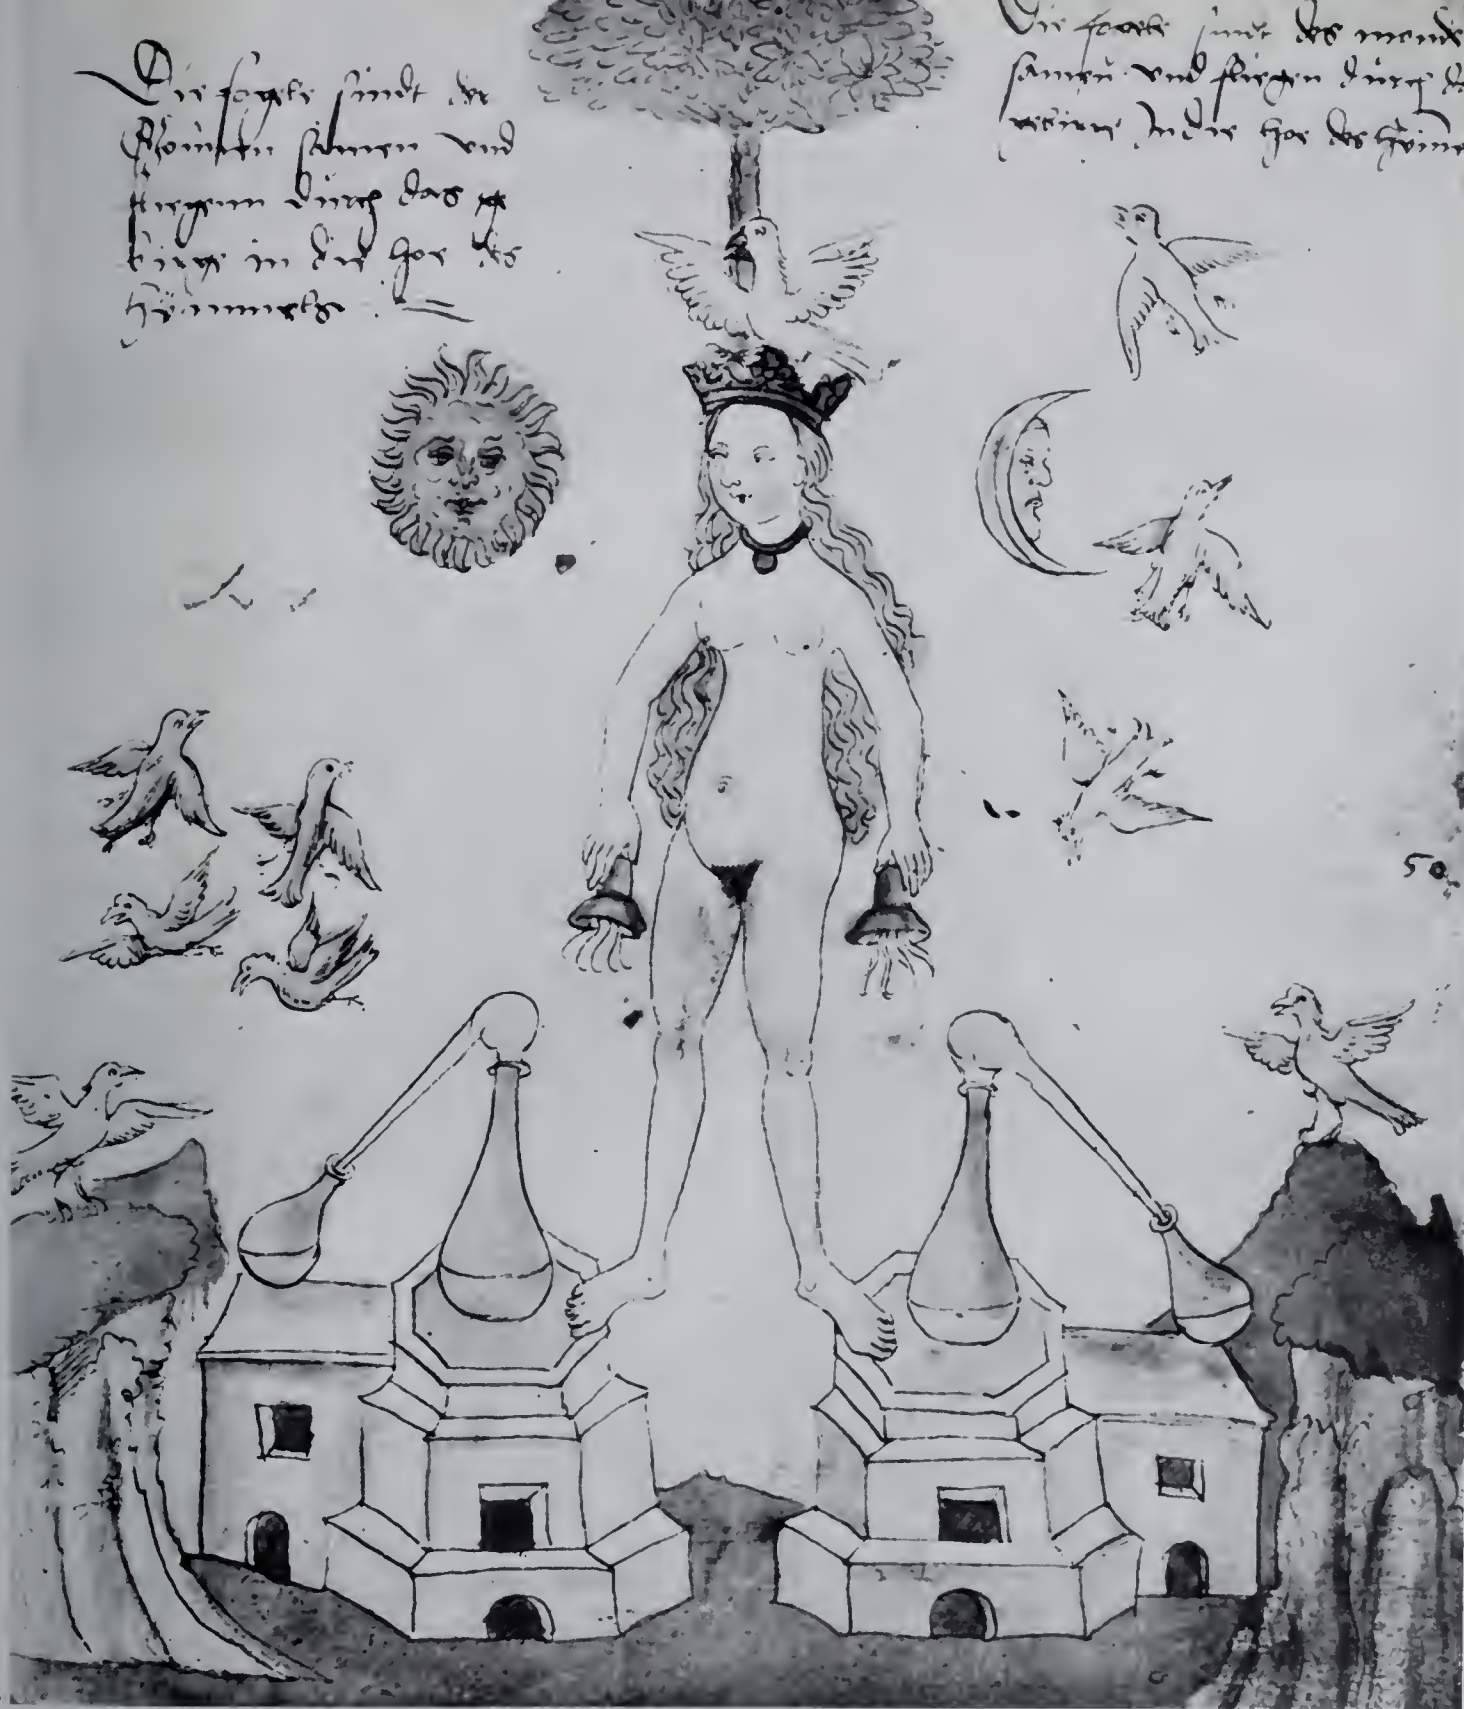 Die fogele sindt der
Sonnen samen und
fliegenn durch das ge
birge in die hoe des
hymmels
Die fogele sindt des monde
samen und fliegen durch d
gebirge In die hoe des hymme
50